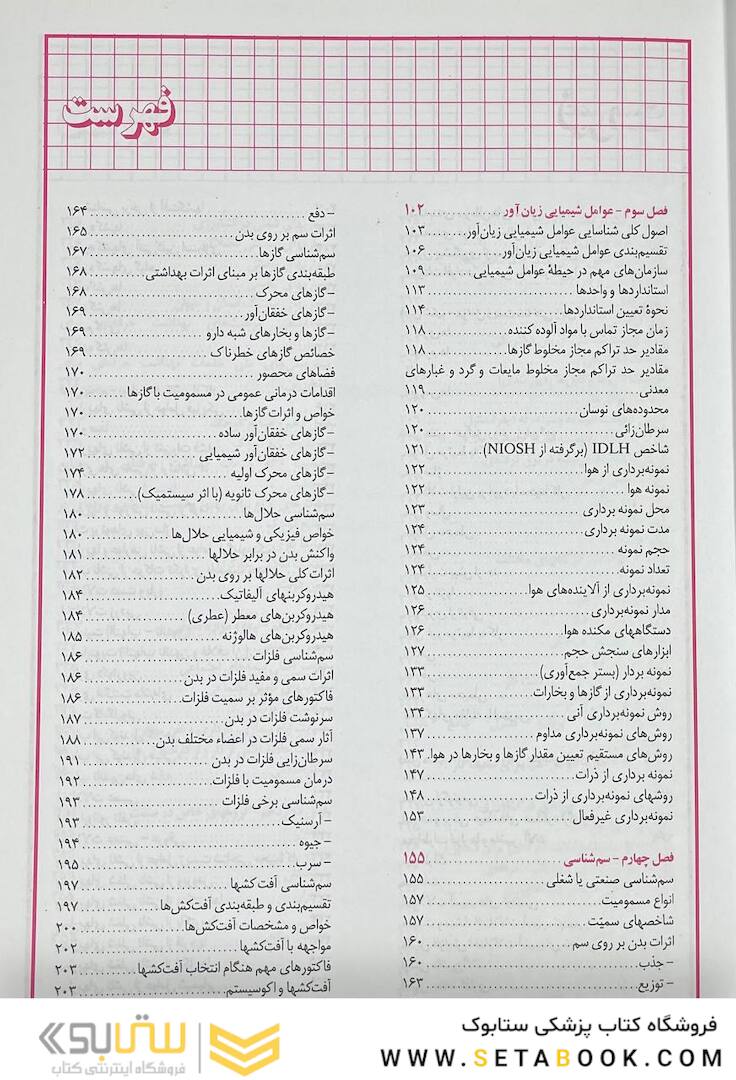 فهرست
فصل سوم - عوامل شیمیایی زیان‌آور ۱۰۲
اصول کلی شناسایی عوامل شیمیایی زیان‌آور ۱۰۳
تقسیم‌بندی عوامل شیمیایی زیان‌آور ۱۰۶
سازمان‌های مهم در حیطهٔ عوامل شیمیایی ۱۰۹
استانداردها و واحدها ۱۱۳
نحوهٔ تعیین استانداردها ۱۱۴
زمان مجاز تماس با مواد آلوده کننده ۱۱۸
مقادیر حد تراکم مجاز مخلوط گازها ۱۱۸
مقادیر حد تراکم مجاز مخلوط مایعات و گرد و غبارهای
معدنی ۱۱۹
محدوده‌های نوسان ۱۲۰
سرطان‌زائی ۱۲۰
شاخص IDLH (برگرفته از NIOSH) ۱۲۱
نمونه‌برداری از هوا ۱۲۲
نمونه هوا ۱۲۲
محل نمونه برداری ۱۲۳
مدت نمونه برداری ۱۲۴
حجم نمونه ۱۲۴
تعداد نمونه ۱۲۴
نمونه‌برداری از آلاینده‌های هوا ۱۲۵
مدار نمونه‌برداری ۱۲۶
دستگاههای مکنده هوا ۱۲۶
ابزارهای سنجش حجم ۱۲۷
نمونه بردار (بستر جمع‌آوری) ۱۳۳
نمونه‌برداری از گازها و بخارات ۱۳۳
روش نمونه‌برداری آنی ۱۳۴
روش‌های نمونه‌برداری مداوم ۱۳۷
روش‌های مستقیم تعیین مقدار گازها و بخارها در هوا ۱۴۳
نمونه برداری از ذرات ۱۴۷
روشهای نمونه‌برداری از ذرات ۱۴۸
نمونه‌برداری غیرفعال ۱۵۳
فصل چهارم - سم‌شناسی ۱۵۵
سم‌شناسی صنعتی یا شغلی ۱۵۵
انواع مسمومیت ۱۵۷
شاخصهای سمیّت ۱۵۷
اثرات بدن بر روی سم ۱۶۰
- جذب ۱۶۰
- توزیع ۱۶۳
- دفع ۱۶۴
اثرات سم بر روی بدن ۱۶۵
سم‌شناسی گازها ۱۶۷
طبقه‌بندی گازها بر مبنای اثرات بهداشتی ۱۶۸
- گازهای محرک ۱۶۸
- گازهای خفقان‌آور ۱۶۹
- گازها و بخارهای شبه دارو ۱۶۹
خصائص گازهای خطرناک ۱۶۹
فضاهای محصور ۱۷۰
اقدامات درمانی عمومی در مسمومیت با گازها ۱۷۰
خواص و اثرات گازها ۱۷۰
- گازهای خفقان‌آور ساده ۱۷۰
- گازهای خفقان‌آور شیمیایی ۱۷۲
- گازهای محرک اولیه ۱۷۴
- گازهای محرک ثانویه (با اثر سیستمیک) ۱۷۸
سم‌شناسی حلال‌ها ۱۸۰
خواص فیزیکی و شیمیایی حلال‌ها ۱۸۰
واکنش بدن در برابر حلالها ۱۸۱
اثرات کلی حلالها بر روی بدن ۱۸۲
هیدروکربنهای آلیفاتیک ۱۸۴
هیدروکربن‌های معطر (عطری) ۱۸۴
هیدروکربن‌های هالوژنه ۱۸۵
سم‌شناسی فلزات ۱۸۶
اثرات سمی و مفید فلزات در بدن ۱۸۶
فاکتورهای مؤثر بر سمیت فلزات ۱۸۶
سرنوشت فلزات در بدن ۱۸۷
آثار سمی فلزات در اعضاء مختلف بدن ۱۸۸
سرطان‌زایی فلزات در بدن ۱۹۱
درمان مسمومیت با فلزات ۱۹۲
سم‌شناسی برخی فلزات ۱۹۳
- آرسنیک ۱۹۳
- جیوه ۱۹۴
- سرب ۱۹۵
سم‌شناسی آفت کشها ۱۹۷
تقسیم‌بندی و طبقه‌بندی آفت‌کش‌ها ۱۹۷
خواص و مشخصات آفت‌کش‌ها ۲۰۰
مواجهه با آفت‌کشها ۲۰۲
فاکتورهای مهم هنگام انتخاب آفت‌کشها ۲۰۳
آفت‌کشها و اکوسیستم ۲۰۳
فروشگاه کتاب پزشکی ستابوک
WWW.SETABOOK.COM
ستابوک
فروشگاه اینترنتی کتاب